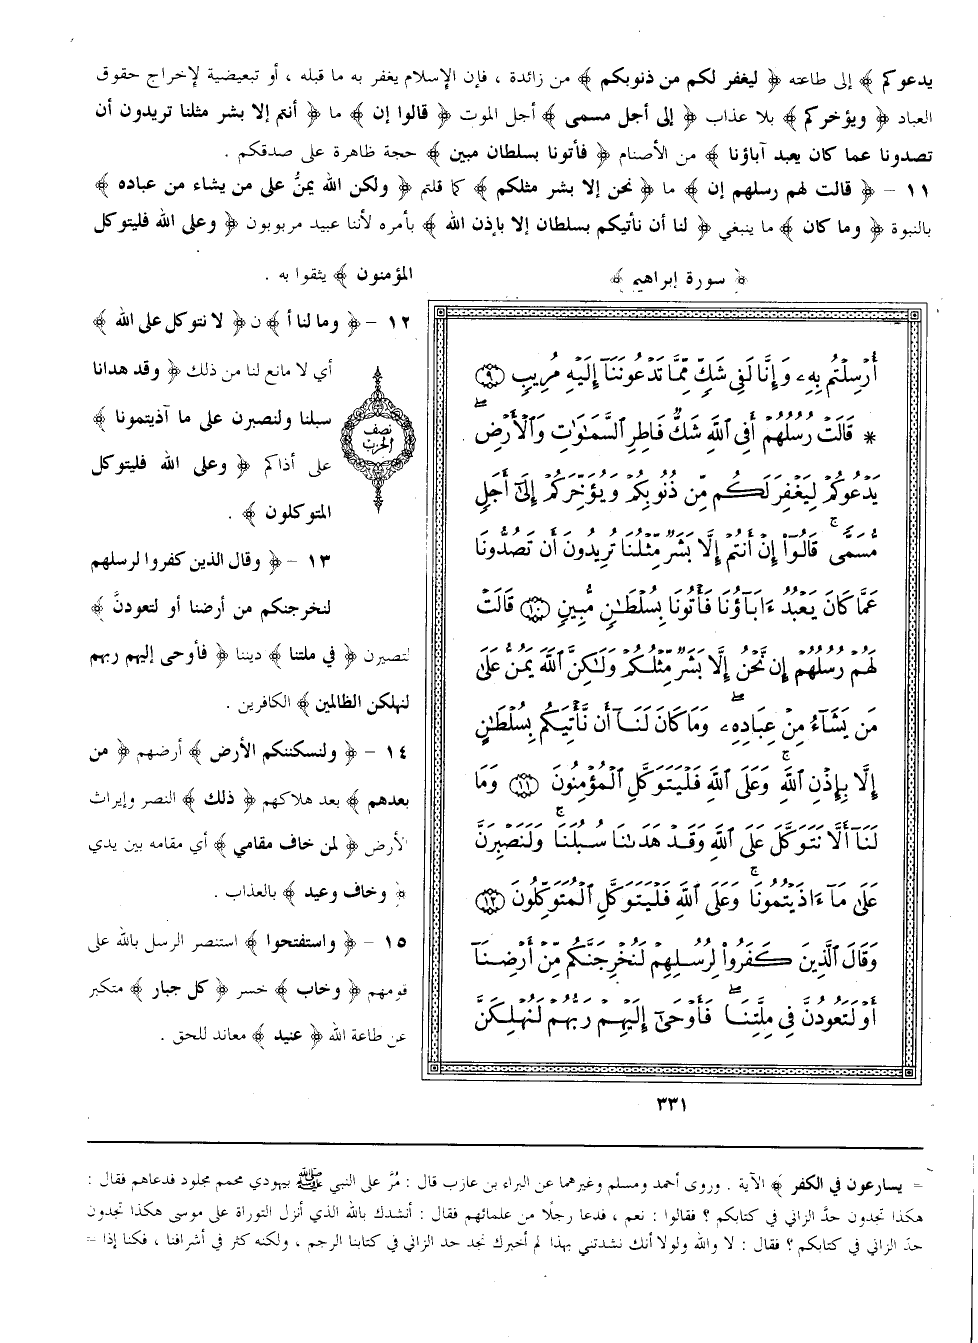 يدعوكم ﴾ إلى طاعته ﴿ ليغفر لكم من ذنوبكم ﴾ من زائدة ، فإن الإسلام يغفر به ما قبله ، أو تبعيضية لإخراج حقوق
العباد ﴿ ويؤخركم ﴾ بلا عذاب ﴿ إلى أجل مسمى ﴾ أجل الموت ﴿ قالوا إن ﴾ ما ﴿ أنتم إلا بشر مثلنا تريدون أن
تصدونا عما كان يعبد آباؤنا ﴾ من الأصنام ﴿ فأتونا بسلطان مبين ﴾ حجة ظاهرة على صدقكم .
١١ - ﴿ قالت لهم رسلهم إن ﴾ ما ﴿ نحن إلا بشر مثلكم ﴾ كما قلتم ﴿ ولكن الله يمنُّ على من يشاء من عباده ﴾
بالنبوة ﴿ وما كان ﴾ ما ينبغي ﴿ لنا أن نأتيكم بسلطان إلا بإذن الله ﴾ بأمره لأننا عبيد مربوبون ﴿ وعلى الله فليتوكل
المؤمنون ﴾ يثقوا به .
١٢ - ﴿ وما لنا أ ﴾ ن ﴿ لا نتوكل على الله ﴾
أي لا مانع لنا من ذلك ﴿ وقد هدانا
سبلنا ولنصبرن على ما آذيتمونا ﴾
على أذاكم ﴿ وعلى الله فليتوكل
المتوكلون ﴾ .
١٣ - ﴿ وقال الذين كفروا لرسلهم
لنخرجنكم من أرضنا أو لتعودنَّ ﴾
لتصيرن ﴿ في ملتنا ﴾ ديننا ﴿ فأوحى إليهم ربهم
لنهلكن الظالمين ﴾ الكافرين .
١٤ - ﴿ ولنسكننكم الأرض ﴾ أرضهم ﴿ من
بعدهم ﴾ بعد هلاكهم ﴿ ذلك ﴾ النصر وإيراث
الأرض ﴿ لمن خاف مقامي ﴾ أي مقامه بين يدي
﴿ وخاف وعيد ﴾ بالعذاب .
١٥ - ﴿ واستفتحوا ﴾ استنصر الرسل بالله على
قومهم ﴿ وخاب ﴾ خسر ﴿ كل جبار ﴾ متكبر
عن طاعة الله ﴿ عنيد ﴾ معاند للحق .
﴿ سورة إبراهيم ﴾
نصف
الحزب
أُرْسِلْتُم بِهِۦ وَإِنَّا لَفِى شَكٍّ مِّمَّا تَدْعُونَنَآ إِلَيْهِ مُرِيبٍ ٩
* قَالَتْ رُسُلُهُمْ أَفِى ٱللَّهِ شَكٌّ فَاطِرِ ٱلسَّمَٰوَٰتِ وَٱلْأَرْضِ ۖ
يَدْعُوكُمْ لِيَغْفِرَ لَكُم مِّن ذُنُوبِكُمْ وَيُؤَخِّرَكُمْ إِلَىٰٓ أَجَلٍ
مُّسَمًّى ۚ قَالُوٓا۟ إِنْ أَنتُمْ إِلَّا بَشَرٌ مِّثْلُنَا تُرِيدُونَ أَن تَصُدُّونَا
عَمَّا كَانَ يَعْبُدُ ءَابَآؤُنَا فَأْتُونَا بِسُلْطَٰنٍ مُّبِينٍ ١٠ قَالَتْ
لَهُمْ رُسُلُهُمْ إِن نَّحْنُ إِلَّا بَشَرٌ مِّثْلُكُمْ وَلَٰكِنَّ ٱللَّهَ يَمُنُّ عَلَىٰ
مَن يَشَآءُ مِنْ عِبَادِهِۦ ۖ وَمَا كَانَ لَنَآ أَن نَّأْتِيَكُم بِسُلْطَٰنٍ
إِلَّا بِإِذْنِ ٱللَّهِ ۚ وَعَلَى ٱللَّهِ فَلْيَتَوَكَّلِ ٱلْمُؤْمِنُونَ ١١ وَمَا
لَنَآ أَلَّا نَتَوَكَّلَ عَلَى ٱللَّهِ وَقَدْ هَدَىٰنَا سُبُلَنَا ۚ وَلَنَصْبِرَنَّ
عَلَىٰ مَآ ءَاذَيْتُمُونَا ۚ وَعَلَى ٱللَّهِ فَلْيَتَوَكَّلِ ٱلْمُتَوَكِّلُونَ ١٢
وَقَالَ ٱلَّذِينَ كَفَرُوا۟ لِرُسُلِهِمْ لَنُخْرِجَنَّكُم مِّنْ أَرْضِنَآ
أَوْ لَتَعُودُنَّ فِى مِلَّتِنَا ۖ فَأَوْحَىٰٓ إِلَيْهِمْ رَبُّهُمْ لَنُهْلِكَنَّ
٣٣١
= يسارعون في الكفر ﴾ الآية . وروى أحمد ومسلم وغيرهما عن البراء بن عازب قال : مُرَّ على النبي ﷺ بيهودي محمم مجلود فدعاهم فقال :
هكذا تجدون حدَّ الزاني في كتابكم ؟ فقالوا : نعم ، فدعا رجلًا من علمائهم فقال : أنشدك بالله الذي أنزل التوراة على موسى هكذا تجدون
حدّ الزاني في كتابكم ؟ فقال : لا والله ولولا أنك نشدتني بهذا لم أخبرك نجد حد الزاني في كتابنا الرجم ، ولكنه كثر في أشرافنا ، فكنا إذا =